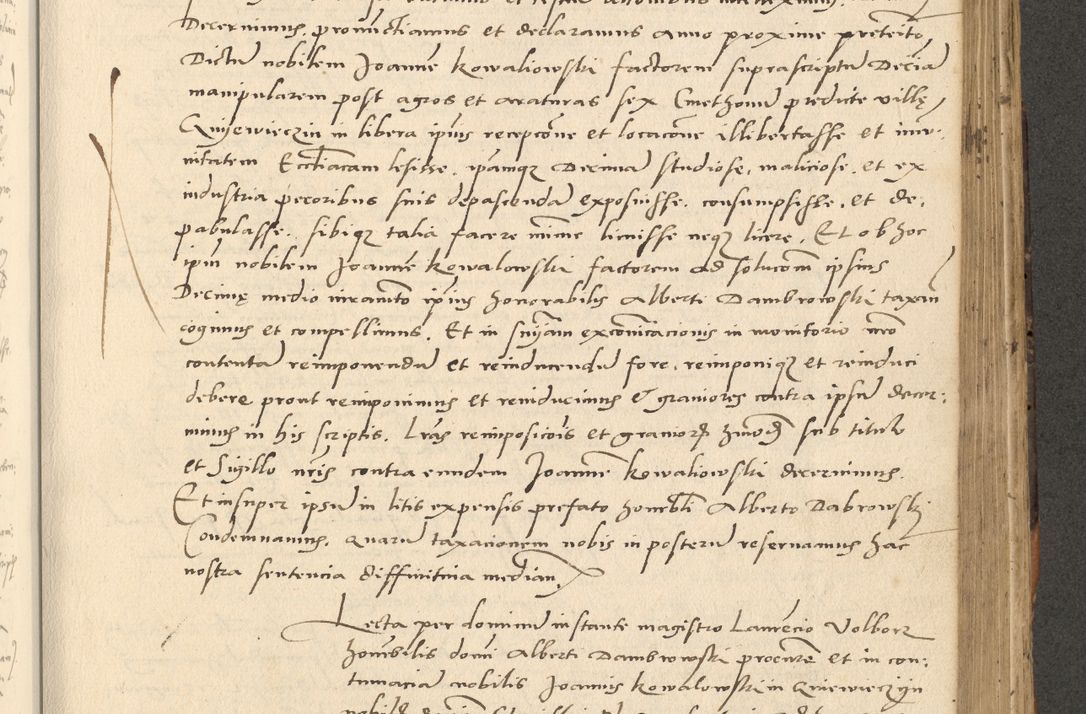 Decernimus, pronunctiamus et declaramus anno proxime preterito
Dictu nobilem Joanne Kowaliowski factorem suprascriptu Decia
manipularem post agros et araturas sex Cmethonu predicte ville
Gniewieczin in libera ipius recepcone et locacone illibertasse et imu-
nitatem Ecctiacam lesisse, ipamque Decima studiose, maliciose, et ex
industria pecoribus suis depascenda exposuisse, consumpsisse, et de-
pabulasse, sibique talia facere mime licuisse neque licere, Et ob hoc
ipm nobilem Joanne Kowalowski factorem ad solucom ipsius
Decime medio iuramto ipius honorabilis Alberti Dambrowski taxan
cogimus et compellimus, Et in sniam excomicacionis in monitorio nro
contenta reimponendu et reinducendu fore, reimponique et reinduci
debere prout reimponimus et reinducimus et graviores contra ipsu decer-
nimus in his scriptis. Lras reimposicois et graviorz huiod sub titulo
et Sigillo nris contra eundem Joanne Kowaliowski decernimus.
Et insuper ipsu in litis expensis prefato honorbli Alberto Dabrowski
Condemnamus, quaru taxacionem nobis in posteru reservamus hac
nostra sentencia diffinitiva median
Lecta per dominu instante magistro Laurencio Volborz
honorbilis domi Alberti Dambrowski procure et in con-
tumacia nobilis Joannis Kowalowski in Gniewieczijn